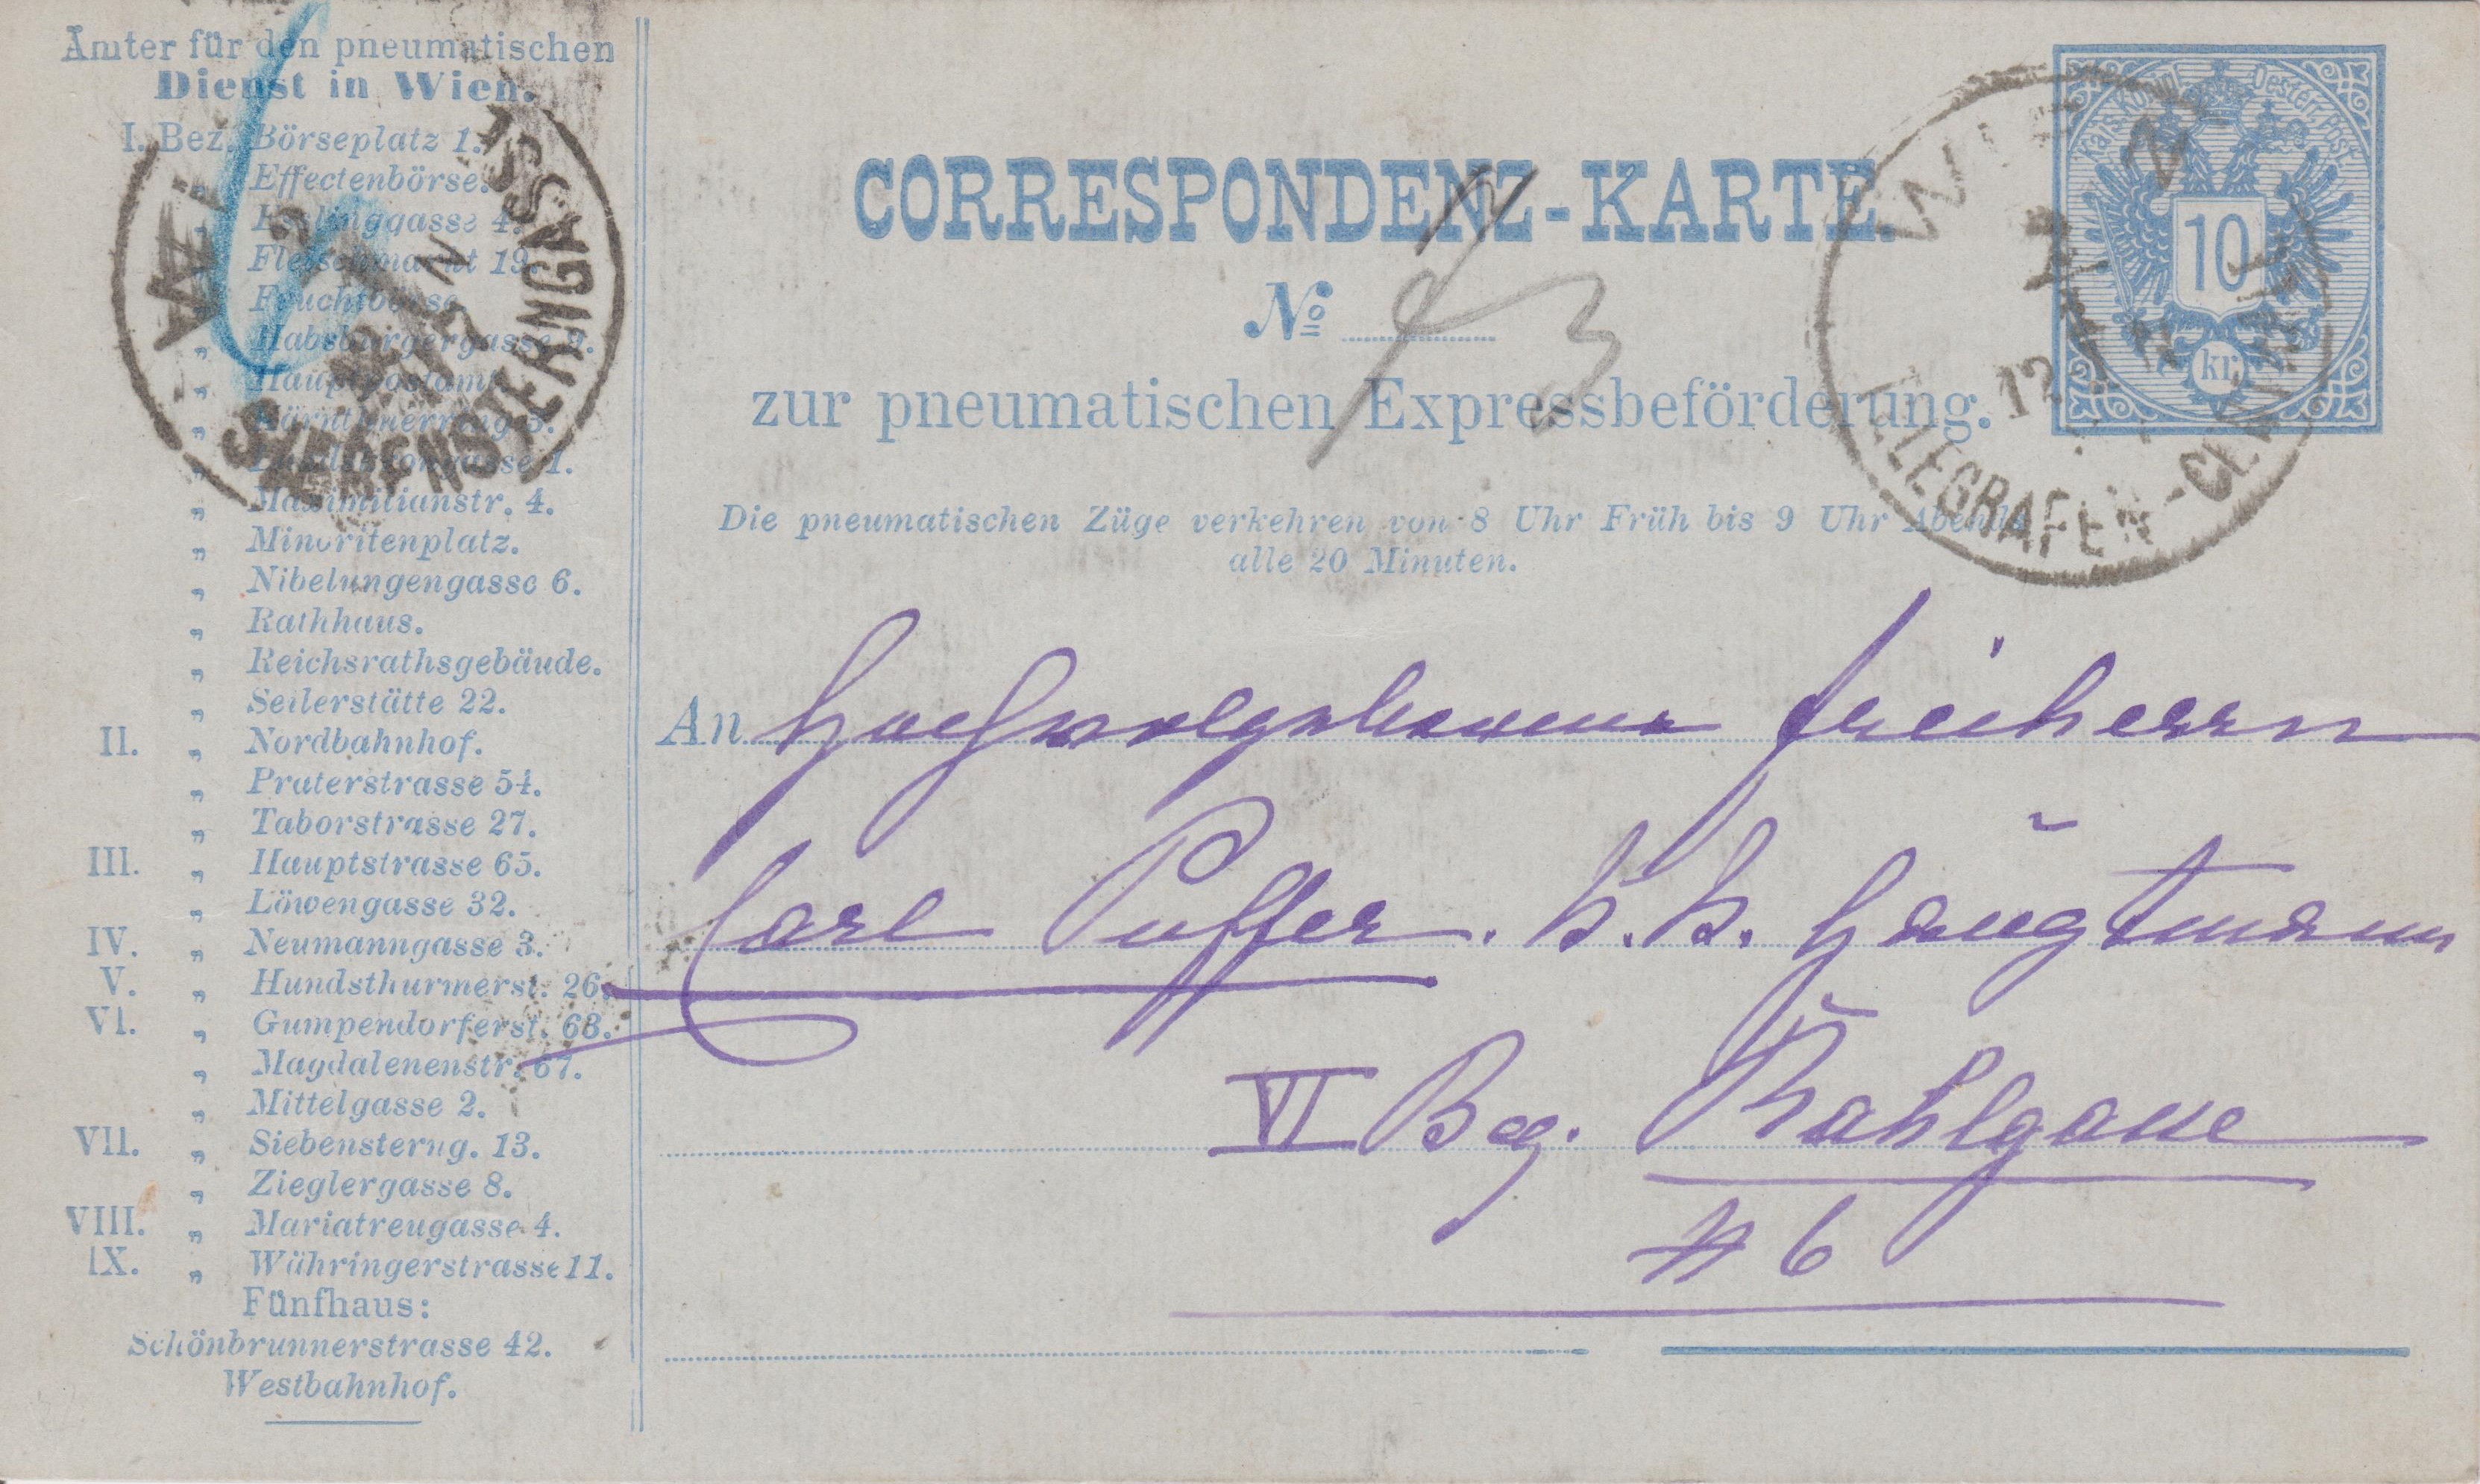 Ämter für den pneumatischen
Dienst in Wien.
I. Bez. Börseplatz 1.
„ Effectenbörse.
„ Esslinggasse 4.
„ Fleischmarkt 19.
„ Fruchtbörse
„ Habsburgergasse 9.
„ Hauptpostamt
„ Kärnthnerring 3.
„
„ Maximilianstr. 4.
„ Minoritenplatz.
„ Nibelungengasse 6.
„ Rathhaus.
„ Reichsrathsgebäude.
„ Seilerstätte 22.
II. „ Nordbahnhof.
„ Praterstrasse 54.
„ Taborstrasse 27.
III. „ Hauptstrasse 65.
„ Löwengasse 32.
IV. „ Neumanngasse 3.
V. „ Hundsthurmerst. 26.
VI. „ Gumpendorferst. 63.
„ Magdalenenstr. 67.
„ Mittelgasse 2.
VII. „ Siebensterng. 13.
„ Zieglergasse 8.
VIII. „ Mariatreugasse 4.
IX. „ Währingerstrasse 11.
Fünfhaus:
Schönbrunnerstrasse 42.
Westbahnhof.
WIEN
SIEBENSTERNGASSE
CORRESPONDENZ-KARTE.
No
zur pneumatischen Expressbeförderung.
Die pneumatischen Züge verkehren von 8 Uhr Früh bis 9 Uhr Abends
alle 20 Minuten.
Kais. Königl. Oesterr. Post
10
kr.
WIEN
TELEGRAFEN-CENTRALE
An Hochwolgeborenen Freiherrn
Carl Puffer. k. k. Hauptmann
VI Bez. Rahlgasse
N 6